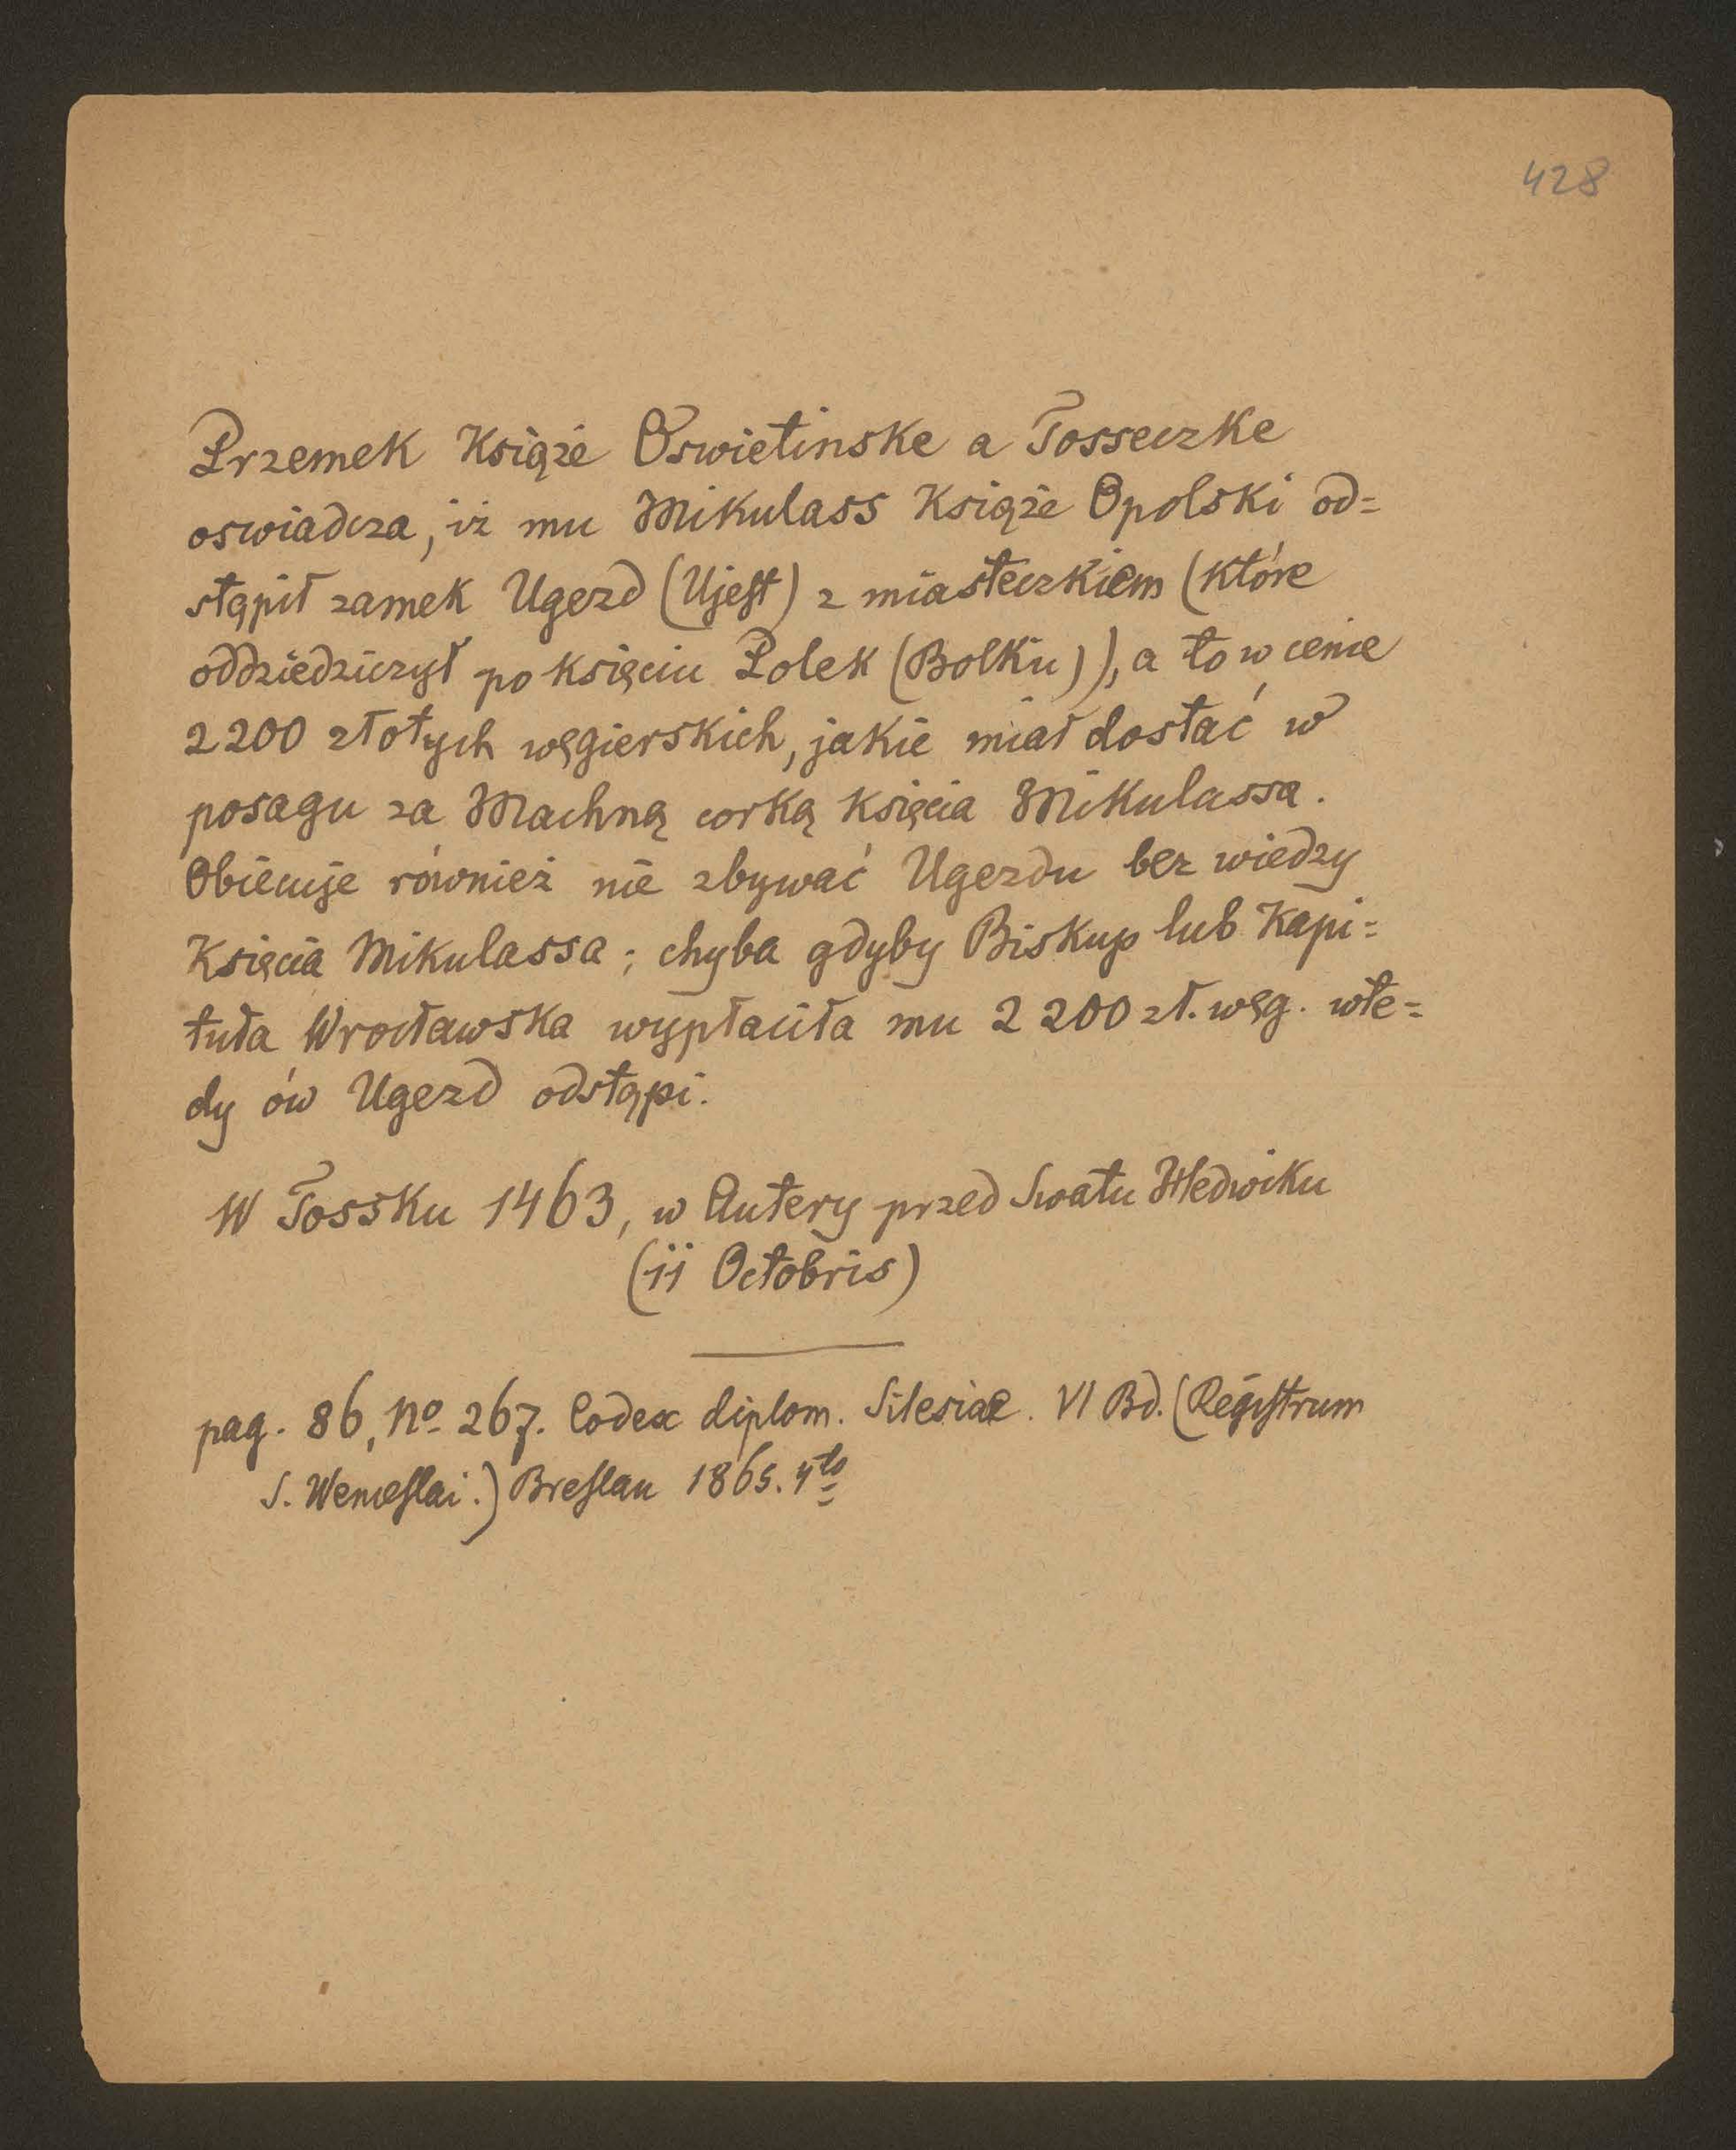 428
Przemek Książe Oswietinske a Tosseczke
oswiadcza, iż mu Mikulass Książe Opolski od=
stąpił zamek Ugezd (Ujest) z miasteczkiem (które
oddziedziczył po księciu Polek (Bolku)), a to w cenie
2200 złotych węgierskich, jakie miał dostać w
posagu za Machną corką Księcia Mikulassa.
Obiecuje również nie zbywać Ugezdu bez wiedzy
Księcia Mikulassa; chyba gdyby Biskup lub Kapi=
tuła Wrocławska wypłaciła mu 2200 zł. węg. wte=
dy ów Ugezd odstąpi.
W Tossku 1463, w Autery przed Swatu Hedwiku
(11 Octobris)
pag. 86, No 267. Codex diplom. Silesiae. VI Bd. (Registrum
S. Wenceslai.) Breslau 1865. 4to